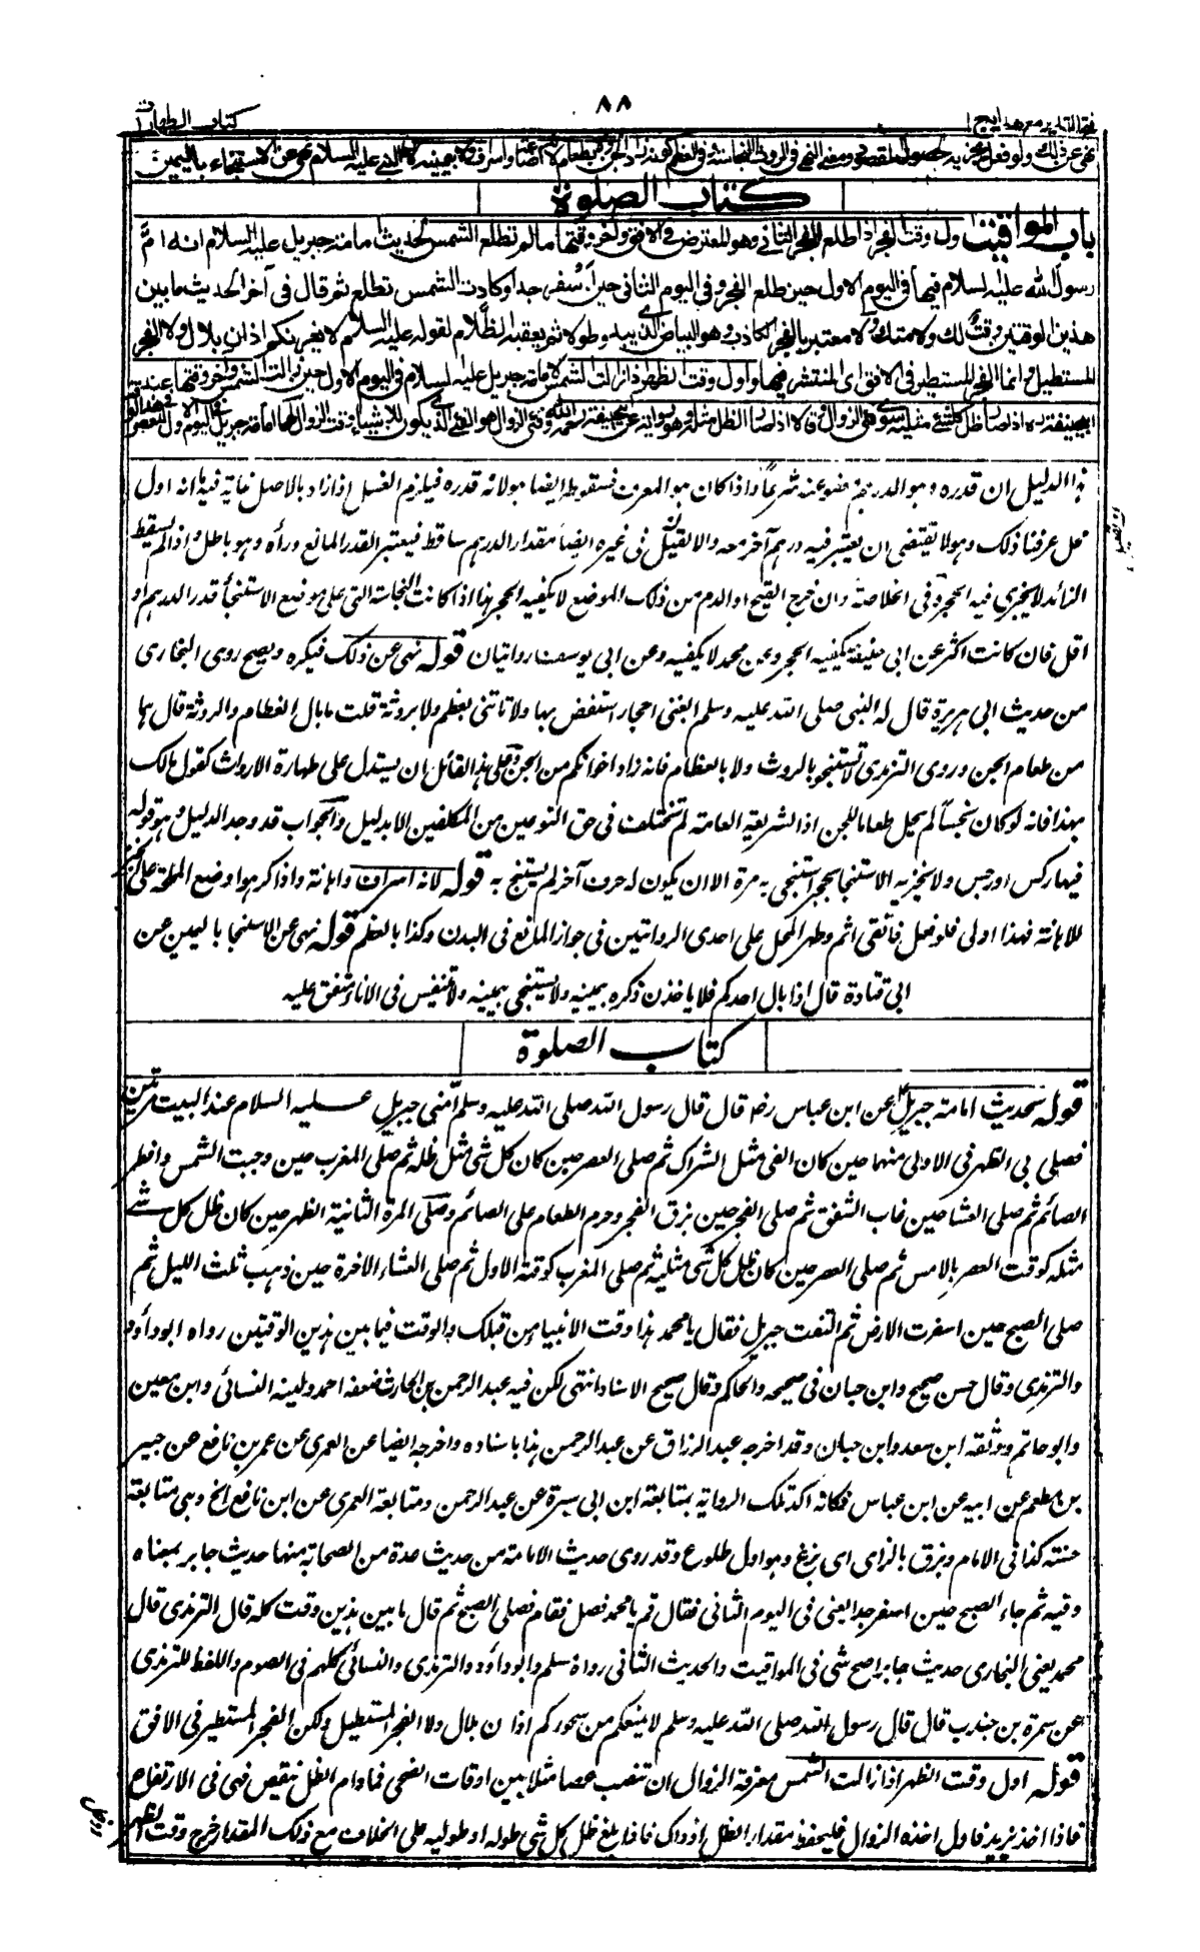 فتح القدير مع هدايه ج ١
٨٨
كتاب الطهارات
نهى عن ذلك ولو فعل يجزيه لحصول المقصود ومعنى النهي في الروث النجاسة وفي العظم كونه زاد الجن ولا بطعام لانه اضاعة واسراف ولا بيمينه لان النبي عليه السلام نهى عن الاستنجاء باليمين
كتاب الصلوة
باب المواقيت اول وقت الفجر اذا طلع الفجر الثاني وهو المعترض في الافق وآخر وقتها ما لم تطلع الشمس لحديث امامة جبريل عليه السلام انه امّ
رسول الله عليه السلام فيها في اليوم الاول حين طلع الفجر وفي اليوم الثاني حين اسفر جدا وكادت الشمس تطلع ثم قال في آخر الحديث ما بين
هذين الوقتين وقت لك ولامتك ولا معتبر بالفجر الكاذب وهو البياض الذي يبدو طولا ثم يعقبه الظلام لقوله عليه السلام لا يغرنكم اذان بلال ولا الفجر
المستطيل وانما الفجر المستطير في الافق اى المنتشر فيها واول وقت الظهر اذا زالت الشمس لامامة جبريل عليه السلام في اليوم الاول حين زالت الشمس وآخر وقتها عند
ابي حنيفة ره اذا صار ظل كل شئ مثليه سوى فئ الزوال وقالا اذا صار الظل مثله وهو رواية عن ابي حنيفة رحمه الله وفئ الزوال هو الفئ الذي يكون للاشياء وقت الزوال لهما امامة جبريل في اليوم الاول للعصر في هذا الوقت
هذا الدليل ان قدره وهو الدرهم معفو عنه شرعاً واذا كان هو المعرف فسقوط ايضا هو لانه قدره فيلزم الغسل اذا زاد بالاصل غاية فيه انه اول
محل عرفنا ذلك وهو لا يقتضى ان يعتبر فيه درهم آخر معه والا لقيل في غيره ايضا مقدار الدرهم ساقط فيعتبر القدر المانع وراه وهو باطل واذا لم يسقط
الزائد لا يجزى فيه الحجر وفى الخلاصة وان خرج القيح او الدم من ذلك الموضع لا يكفيه الحجر هذا اذا كانت النجاسة التى على موضع الاستنجاء قدر الدرهم او
اقل فان كانت اكثر عن ابى حنيفة يكفيه الحجر وعن محمد لا يكفيه وعن ابى يوسف روايتان قوله نهى عن ذلك فيكره ويصح روى البخارى
من حديث ابى هريرة قال له النبى صلى الله عليه وسلم ابغنى احجار استنفض بها ولا تاتنى بعظم ولا بروثة قلت ما بال العظام والروثة قال هما
من طعام الجن وروى الترمذى لا تستنجوا بالروث ولا بالعظام فانه زاد اخوانكم من الجن وعلى هذا القائل ان يستدل على طهارة الارواث كقول مالك
بهذا فانه لو كان نجسا لم يحل طعاما للجن اذ الشريعة العامة لم تختلف فى حق النوعين من المكلفين الا بدليل والجواب قد وجد الدليل وهو قوله
فيها ركس او رجس ولا يجزيه الاستنجاء بحجر استنجى به مرة الا ان يكون له حرف آخر لم يستنج به قوله لانه اسراف واهانة واذا كرهوا وضع المملحة على الخبز
للاهانة فهذا اولى فلو فعل فانقى اثم وطهر المحل على احدى الروايتين فى جواز المائع فى البدن وكذا بالعظم قوله نهى عن الاستنجاء باليمين عن
ابى قتادة قال اذا بال احدكم فلا ياخذن ذكره بيمينه ولا يستنجى بيمينه ولا يتنفس فى الاناء متفق عليه
كتاب الصلوة
قوله لحديث امامة جبريل عن ابن عباس رضه قال قال رسول الله صلى الله عليه وسلم أمّنى جبريل عليه السلام عند البيت مرتين
فصلى بى الظهر فى الاولى منهما حين كان الفئ مثل الشراك ثم صلى العصر حين كان كل شئ مثل ظله ثم صلى المغرب حين وجبت الشمس وافطر
الصائم ثم صلى العشا حين غاب الشفق ثم صلى الفجر حين بزق الفجر وحرم الطعام على الصائم وصلى المرة الثانية الظهر حين كان ظل كل شئ
مثله كوقت العصر بالامس ثم صلى العصر حين كان ظل كل شئ مثليه ثم صلى المغرب كوقته الاول ثم صلى العشاء الاخرة حين ذهب ثلث الليل ثم
صلى الصبح حين اسفرت الارض ثم التفت جبريل فقال يا محمد هذا وقت الانبياء من قبلك والوقت فيما بين هذين الوقتين رواه ابو داود
والترمذى وقال حسن صحيح وابن حبان فى صحيحه والحاكم وقال صحيح الاسناد انتهى لكن فيه عبد الرحمن بن الحارث ضعفه احمد ولينه النسائى وابن معين
وابو حاتم ووثقه ابن سعد وابن حبان وقد اخرجه عبد الرزاق عن عبد الرحمن هذا باسناده واخرجه ايضا عن العمرى عن عمر بن نافع عن جبير
بن مطعم عن ابيه عن ابن عباس فكانه اكد تلك الرواية بمتابعة ابن ابى سبرة عن عبد الرحمن ومتابعة العمرى عن ابن نافع الخ وهى متابعة
حسنة كذا فى الامام وبزق بالزاى اى بزغ وهو اول طلوع وقد روى حديث الامامة من حديث عدة من الصحابة منها حديث جابر بمعناه
وفيه ثم جاء الصبح حين اسفر جدا يعنى فى اليوم الثانى فقال قم يا محمد فصل فقام فصلى الصبح ثم قال ما بين هذين وقت كله قال الترمذى قال
محمد يعنى البخارى حديث جابر اصح شئ فى المواقيت والحديث الثانى رواه مسلم وابو داود والترمذى والنسائى كلهم فى الصوم واللفظ للترمذى
عن سمرة بن جندب قال قال رسول الله صلى الله عليه وسلم لا يمنعكم من سحوركم اذان بلال ولا الفجر المستطيل ولكن الفجر المستطير فى الافق
قوله اول وقت الظهر اذا زالت الشمس معرفة الزوال ان تنصب عصا مثلا بين اوقات الضحى فما دام الظل ينقص فهى فى الارتفاع
فاذا اخذ يزيد فاول اخذه الزوال فليحفظ مقدار الظل اذ ذاك فاذا بلغ ظل كل شئ طوله او طوليه على الخلاف مع ذلك المقدار خرج وقت الظهر